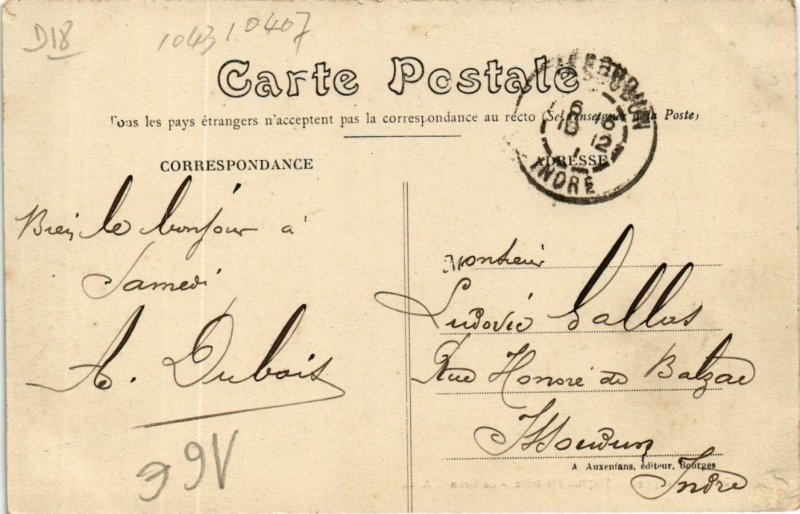 D18
10431 0407
Carte Postale
Tous les pays étrangers n'acceptent pas la correspondance au recto (Se renseigner à la Poste)
CORRESPONDANCE
ADRESSE
INDRE
Bien le bonjour à
Samedi
A. Dubois
Monsieur
Ludovic
Rue Honoré de Balzac
Issoudun
Indre
A Auxenfans, éditeur, Bourges